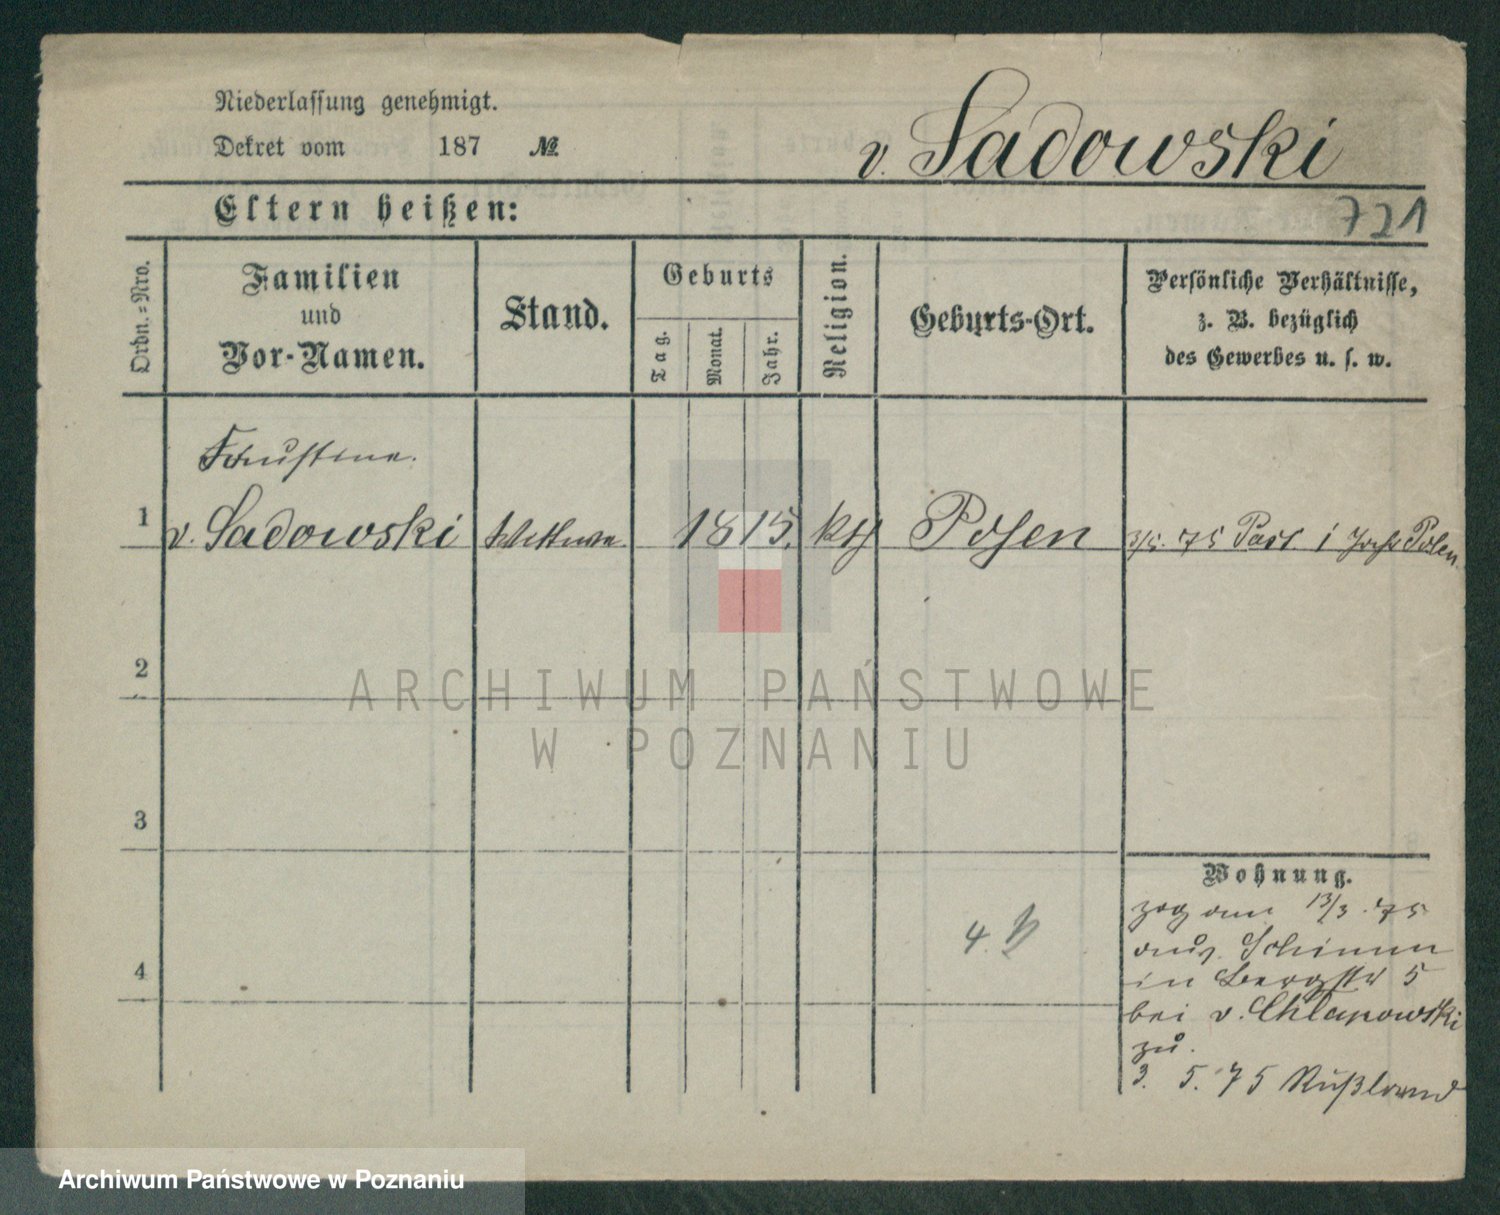 Niederlassung genehmigt.
Dekret vom 187 №
v. Sadowski
Eltern heißen:
721
Ordn.=Nro.
Familien
und
Vor-Namen.
Stand.
Geburts
Tag.
Monat.
Jahr.
Religion.
Geburts-Ort.
Persönliche Verhältnisse,
z. B. bezüglich
des Gewerbes u. s. w.
Faustina.
1 v. Sadowski Wittwe 1815. kth Posen 3/5. 75 Paß. 1 Jahr Polen.
2
ARCHIWUM PAŃSTWOWE
W POZNANIU
3
Wohnung.
zog am 13/3. 75
aus Schrimm
in Bergstr 5
bei v. Chlapowski
zu.
3. 5. 75 Rußland
4.
4
Archiwum Państwowe w Poznaniu